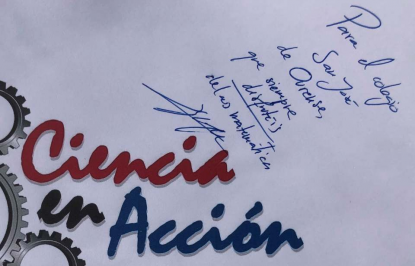 Para el colegio
San José
de Ourense,
que siempre
disfrutéis
de las matemáticas
Ciencia
en
Acción